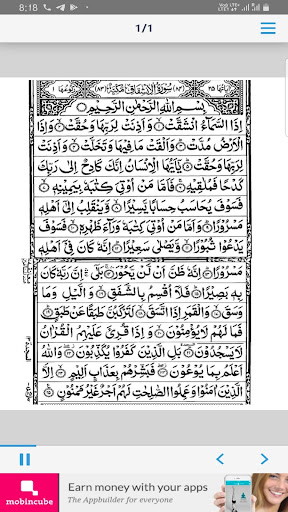 8:18
1/1
اٰیاتها ٢٥ (٨٤) سُوْرَةُ الْاِنْشِقَاقِ مَكِّيَّةٌ (٨٣) رکوعها ١
بِسْمِ اللّٰهِ الرَّحْمٰنِ الرَّحِيْمِ
اِذَا السَّمَآءُ انْشَقَّتْ ۝١ وَاَذِنَتْ لِرَبِّهَا وَحُقَّتْ ۝٢ وَاِذَا
الْاَرْضُ مُدَّتْ ۝٣ وَاَلْقَتْ مَا فِيْهَا وَتَخَلَّتْ ۝٤ وَاَذِنَتْ
لِرَبِّهَا وَحُقَّتْ ۝٥ يٰٓاَيُّهَا الْاِنْسَانُ اِنَّكَ كَادِحٌ اِلٰى رَبِّكَ
كَدْحًا فَمُلٰقِيْهِ ۝٦ فَاَمَّا مَنْ اُوْتِيَ كِتٰبَهٗ بِيَمِيْنِهٖ ۝٧
فَسَوْفَ يُحَاسَبُ حِسَابًا يَّسِيْرًا ۝٨ وَّيَنْقَلِبُ اِلٰٓى اَهْلِهٖ
مَسْرُوْرًا ۝٩ وَاَمَّا مَنْ اُوْتِيَ كِتٰبَهٗ وَرَآءَ ظَهْرِهٖ ۝١٠ فَسَوْفَ
يَدْعُوْا ثُبُوْرًا ۝١١ وَّيَصْلٰى سَعِيْرًا ۝١٢ اِنَّهٗ كَانَ فِيْٓ اَهْلِهٖ
مَسْرُوْرًا ۝١٣ اِنَّهٗ ظَنَّ اَنْ لَّنْ يَّحُوْرَ ۝١٤ بَلٰٓى اِنَّ رَبَّهٗ كَانَ
بِهٖ بَصِيْرًا ۝١٥ فَلَآ اُقْسِمُ بِالشَّفَقِ ۝١٦ وَالَّيْلِ وَمَا
وَسَقَ ۝١٧ وَالْقَمَرِ اِذَا اتَّسَقَ ۝١٨ لَتَرْكَبُنَّ طَبَقًا عَنْ طَبَقٍ ۝١٩
فَمَا لَهُمْ لَا يُؤْمِنُوْنَ ۝٢٠ وَاِذَا قُرِئَ عَلَيْهِمُ الْقُرْاٰنُ
لَا يَسْجُدُوْنَ ۝٢١ بَلِ الَّذِيْنَ كَفَرُوْا يُكَذِّبُوْنَ ۝٢٢ وَاللّٰهُ
اَعْلَمُ بِمَا يُوْعُوْنَ ۝٢٣ فَبَشِّرْهُمْ بِعَذَابٍ اَلِيْمٍ ۝٢٤ اِلَّا
الَّذِيْنَ اٰمَنُوْا وَعَمِلُوا الصّٰلِحٰتِ لَهُمْ اَجْرٌ غَيْرُ مَمْنُوْنٍ ۝٢٥
mobincube
Earn money with your apps
The Appbuilder for everyone